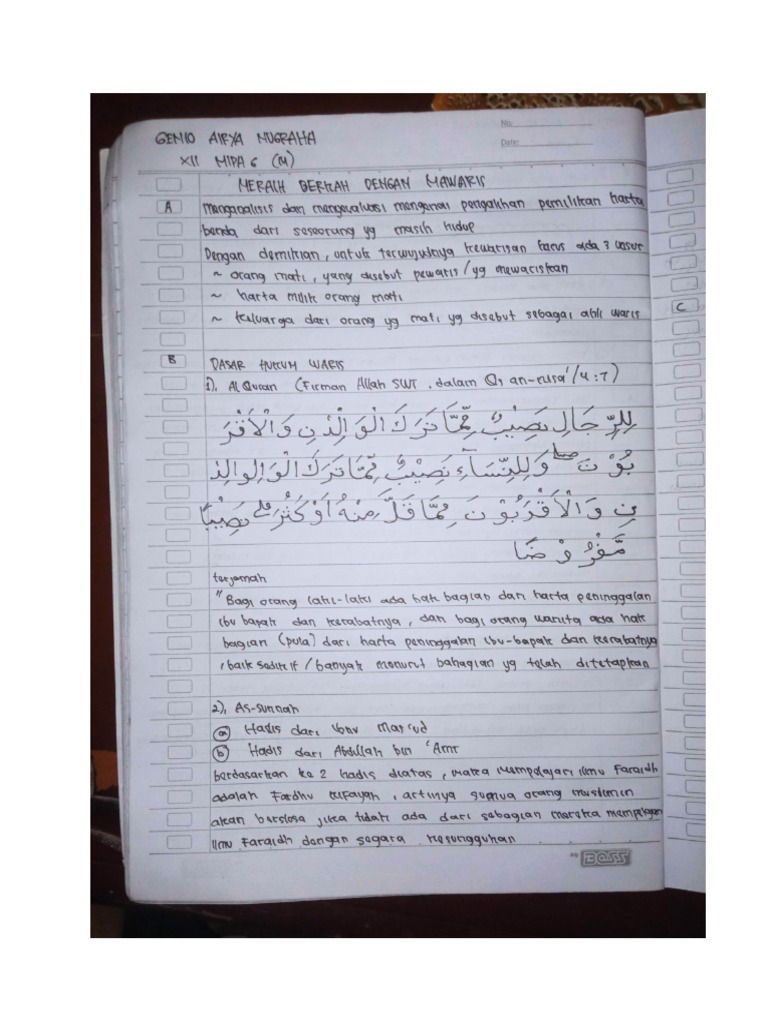 No:
Date:
GENIO AIRYA NUGRAHA
XII MIPA 6 (14)
MERAIH BERKAH DENGAN MAWARIS
A
menganalisis dan mengevaluasi mengenai pengalihan pemilikan harta
benda dari seseorang yg masih hidup
Dengan demikian, untuk terwujudnya kewarisan harus ada 3 unsur
~ orang mati, yang disebut pewaris / yg mewariskan
~ harta milik orang mati
~ keluarga dari orang yg mati yg disebut sebagai ahli waris
C
B
DASAR HUKUM WARIS
1). Al Quran (Firman Allah SWT. dalam Qs an-nisa'/4:7)
لِلرِّجَالِ نَصِيْبٌ مِّمَّا تَرَكَ الْوَالِدٰنِ وَالْأَقْرَ
بُوْنَ ۖ وَلِلنِّسَاۤءِ نَصِيْبٌ مِّمَّا تَرَكَ الْوَالِدٰ
نِ وَالْأَقْرَبُوْنَ مِمَّا قَلَّ مِنْهُ أَوْ كَثُرَ ۗ نَصِيْبًا
مَّفْرُوْضًا
terjemah
"Bagi orang laki-laki ada hak bagian dari harta peninggalan
ibu bapak dan kerabatnya, dan bagi orang wanita ada hak
bagian (pula) dari harta peninggalan ibu-bapak dan kerabatnya
, baik sedikit / banyak menurut bahagian yg telah ditetapkan
2). As-sunnah
a Hadis dari Ibnu Mas'ud
b Hadis dari Abdullah bin 'Amr
berdasarkan ke 2 hadis diatas, maka mempelajari ilmu Faraidh
adalah Fardhu kifayah, artinya semua orang muslimin
akan berdosa jika tidak ada dari sebagian mereka mempelajari
ilmu Faraidh dengan segara kesungguhan
by BOSS